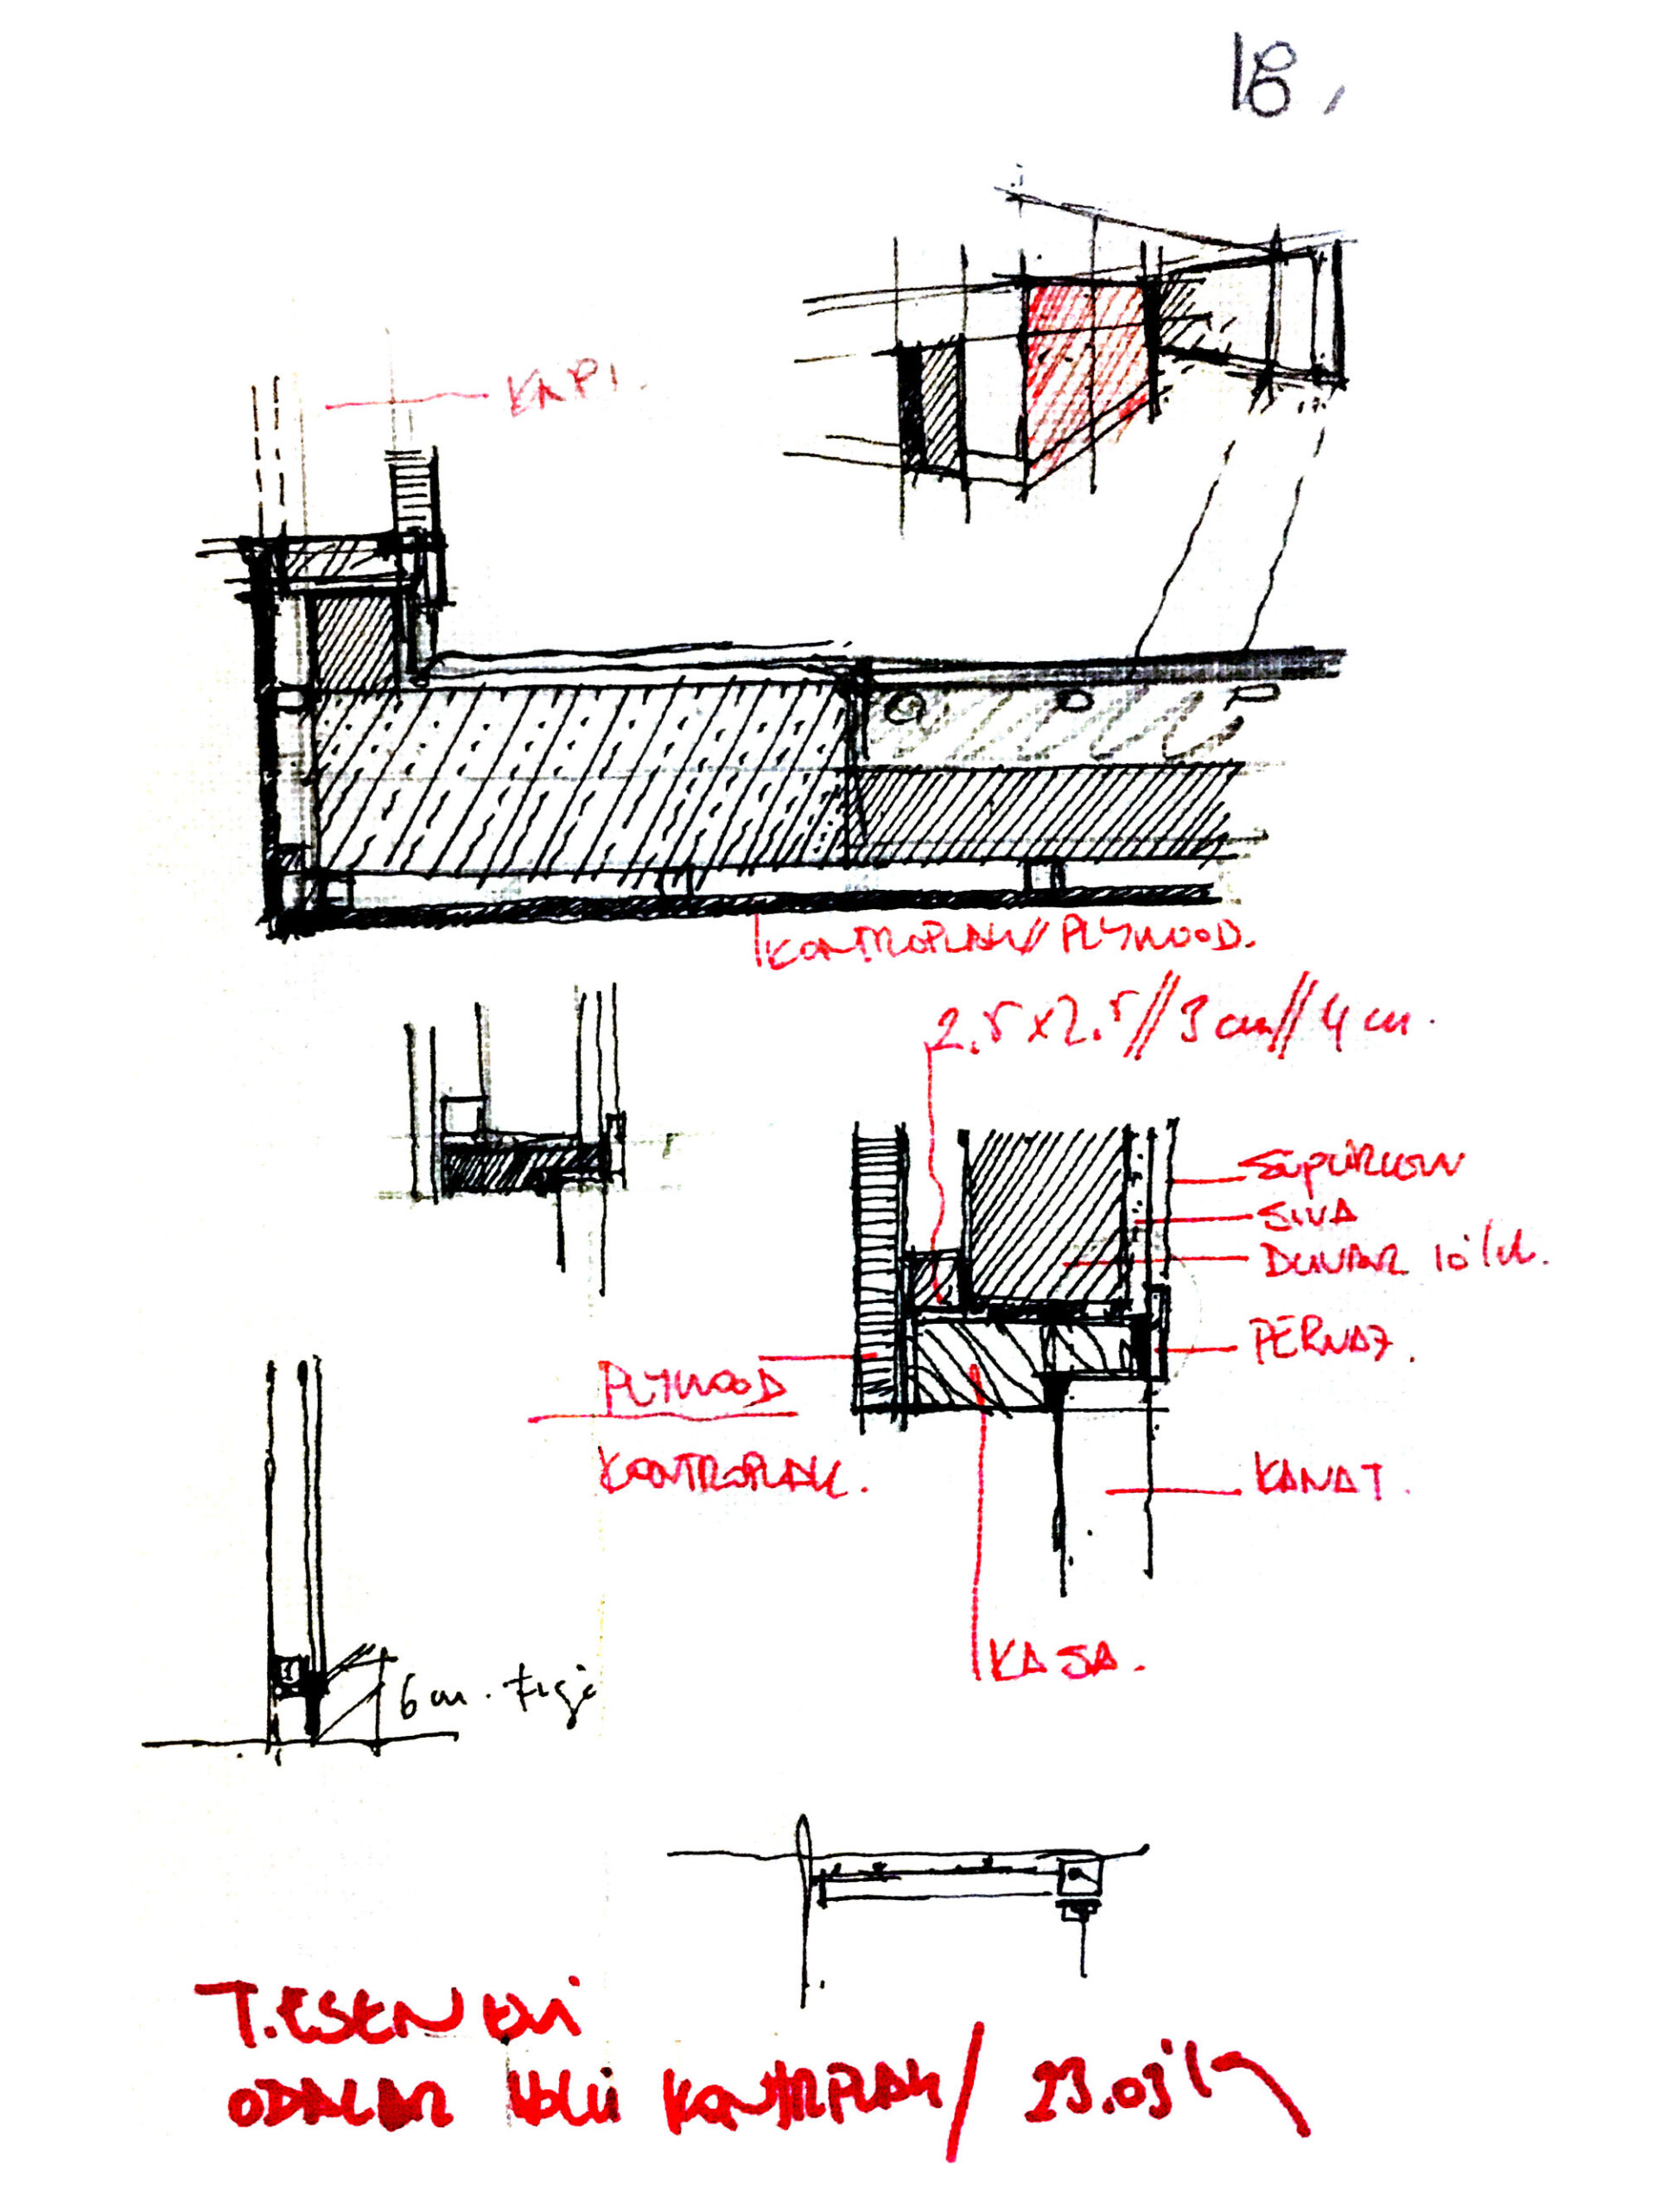 18,
KAPI.
KONTROPLAK// PLYWOOD.
2.5 x 2.5 // 3 cm // 4 cm.
SÜPÜRGELİK
SIVA
DUVAR 10'luk.
PERVAZ.
PLYWOOD
KONTROPLAK.
KANAT.
KASA.
6 cm.
T.ESEN EVİ
ODALAR HOLÜ KONTRPLAK /